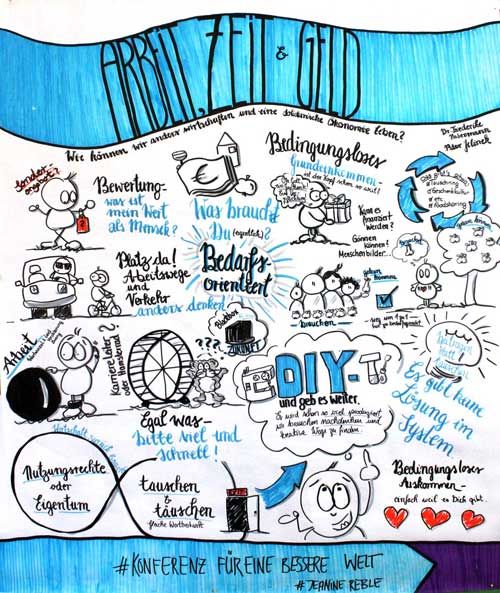 ARBEIT, ZEIT & GELD
Wie können wir anders wirtschaften und eine solidarische Ökonomie leben?
Dr. Friederike Habermann
Peter Jelinek
Bewertung-
was ist
mein Wert
als Mensch?
Was brauchst
Du (eigentlich)?
Bedarfs-
orientiert
Bedingungsloses
Grundeinkommen-
Kann es
finanziert
werden?
Gönnen
können?
Menschenbilder...
Das gibt's schon:
Tauschring
etc.
Platz da!
Arbeitswege
und
Verkehr
anders denken!
brauchen
Arbeit
Karriere Leiter
oder Hamsterrad?
Blackbox
ZUKUNFT
???
DIY-
und geb es weiter.
Es wird schon so viel produziert
wir brauchen
kreative Wege zu finden.
Beitragen
statt
tauschen
Es gibt keine
Lösung im
System
Egal was-
Bitte viel und
schnell!
Nutzungsrechte
oder
Eigentum
tauschen
&
täuschen
Bedingungsloses
Auskommen-
einfach weil es Dich gibt.
#KONFERENZ FÜR EINE BESSERE WELT
#JEANINE REBLE